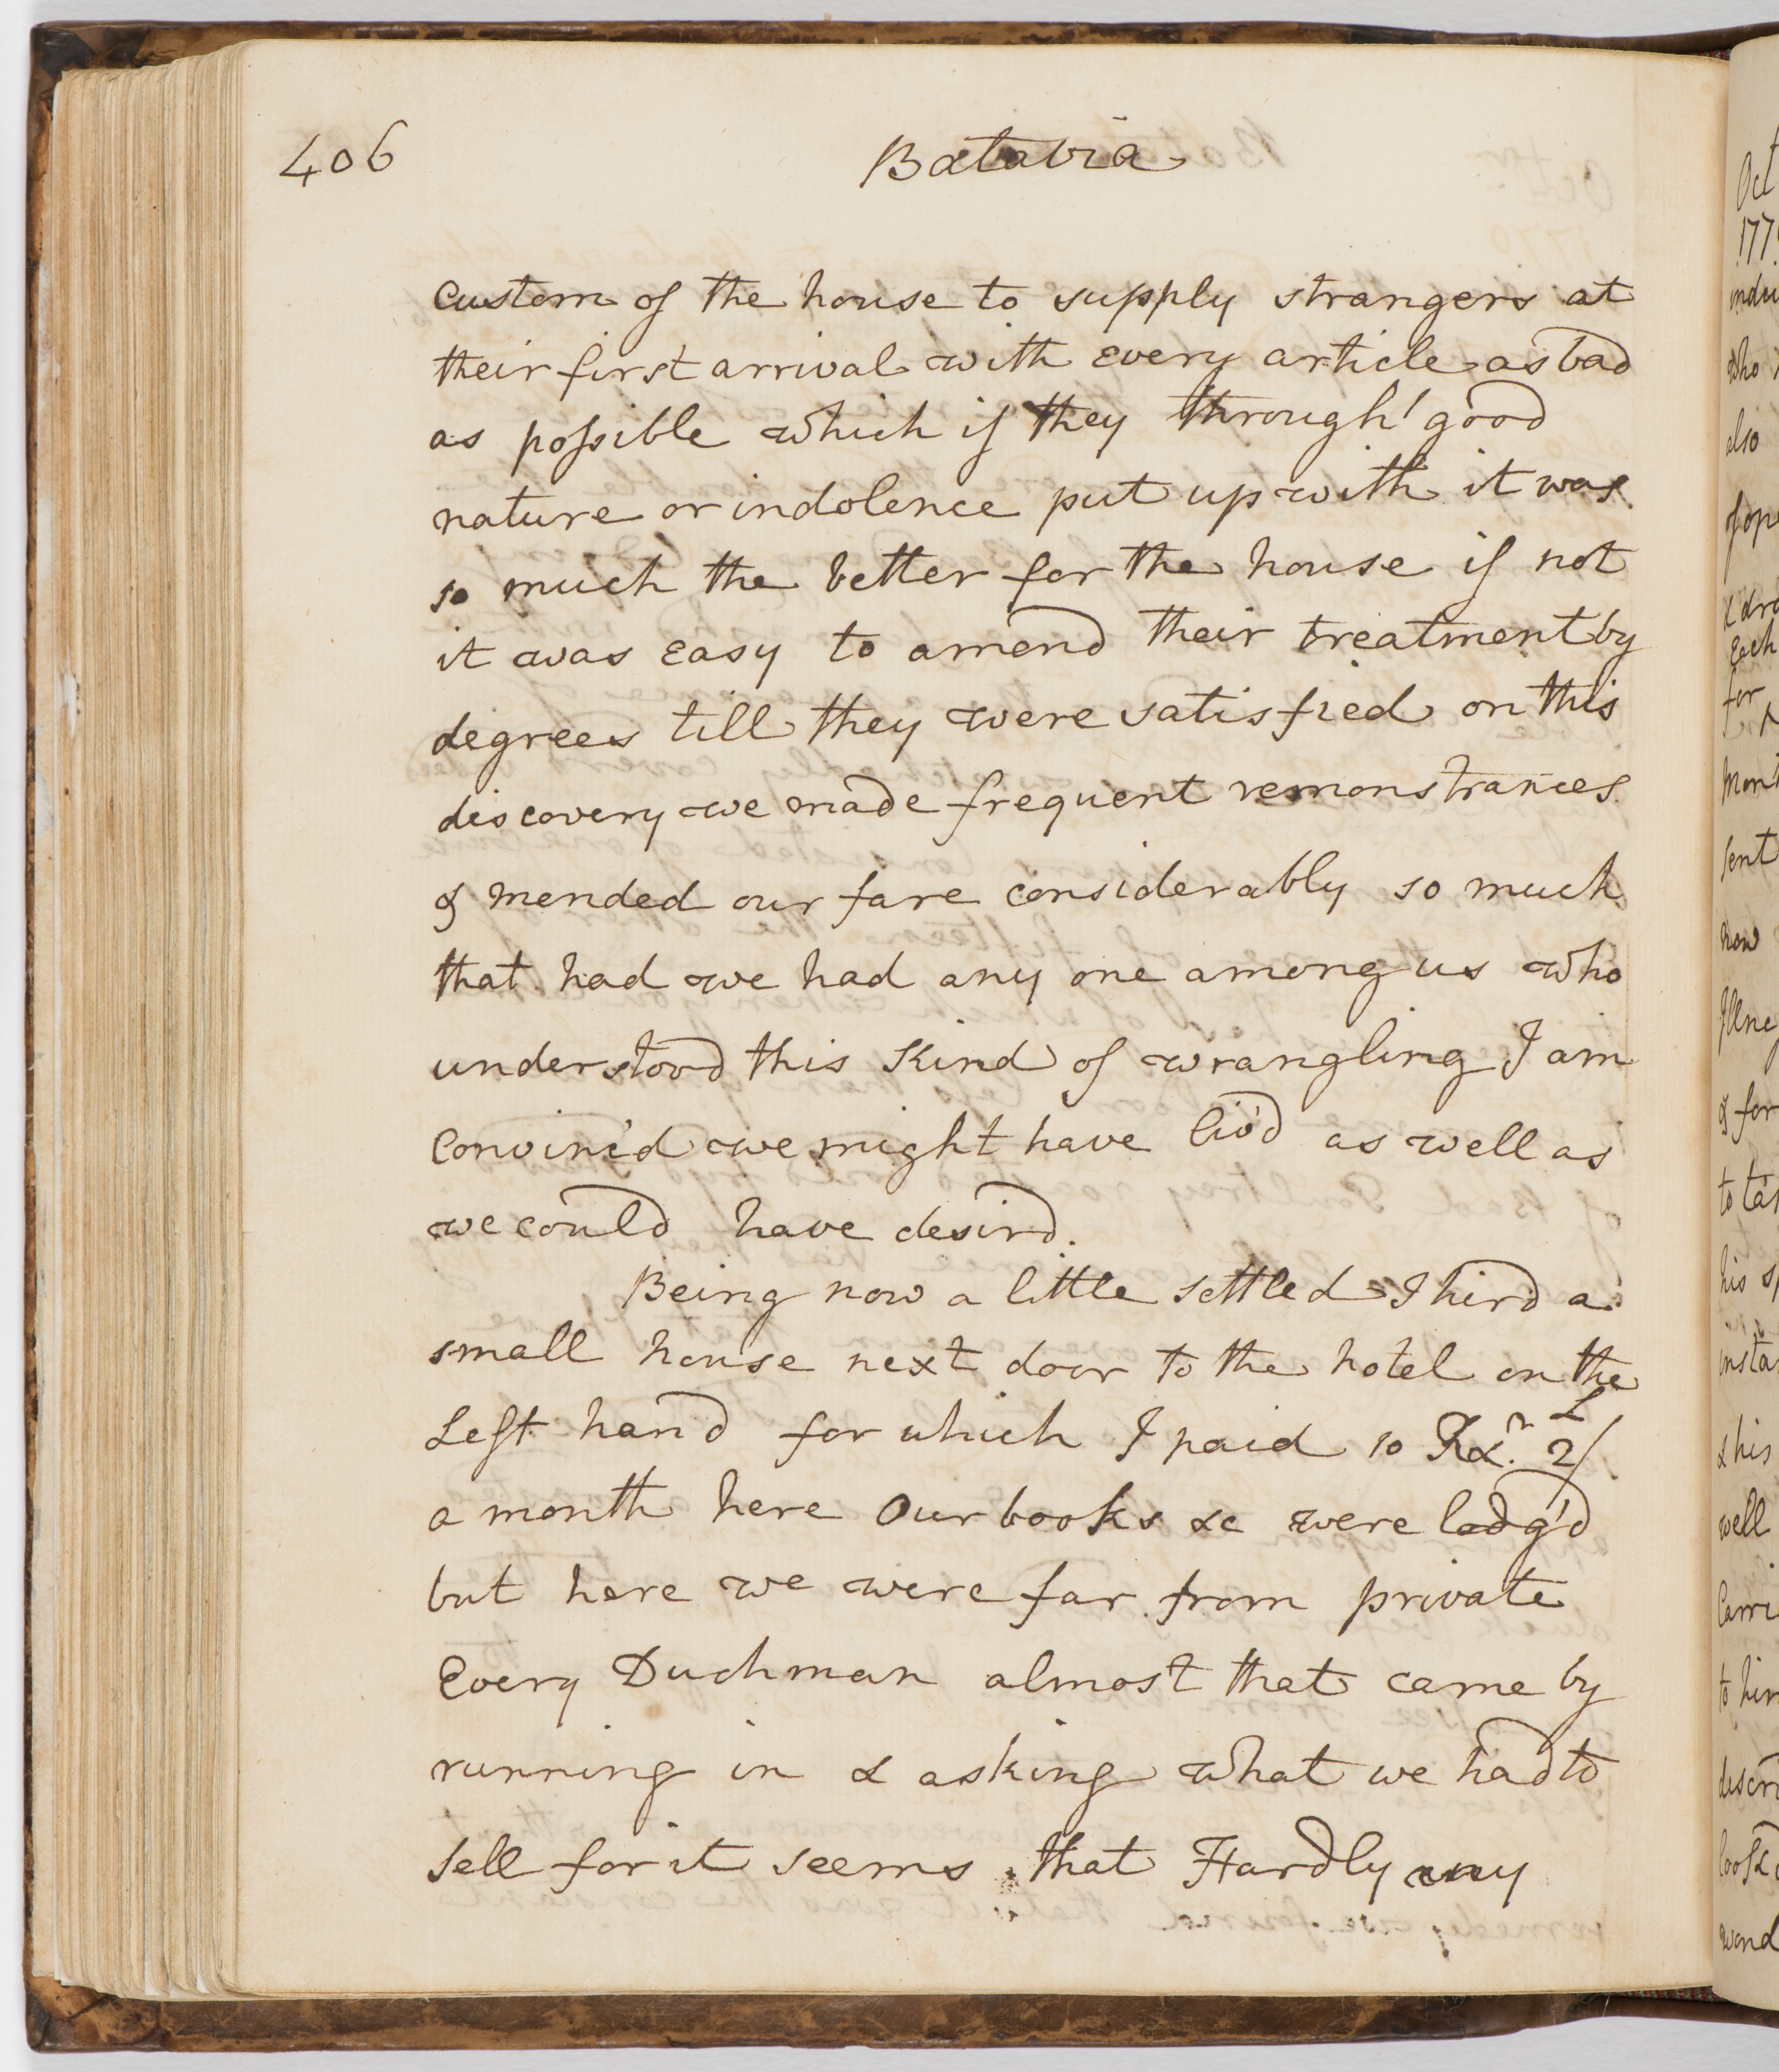 406
Batavia
custom of the house to supply strangers at
their first arrival with every article as bad
as possible which if they through' good
nature or indolence put up with it was
so much the better for the house if not
it was easy to amend their treatment by
degrees till they were satisfied on this
discovery we made frequent remonstrances
& mended our fare considerably so much
that had we had any one among us who
understood this Kind of wrangling I am
Convinc'd we might have liv'd as well as
we could have desird.
Being now a little settled I hird a
small house next door to the hotel on the
Left hand for which I paid 10 Rxr. £2/
a month here Our books &c were lodg'd
but here we were far from private
Every Duchman almost that came by
running in & asking what we had to
sell for it seems that Hardly any
Oct
177
who
also
& dra
Each
for
sent
now
& for
his
insta
& his
well
to him